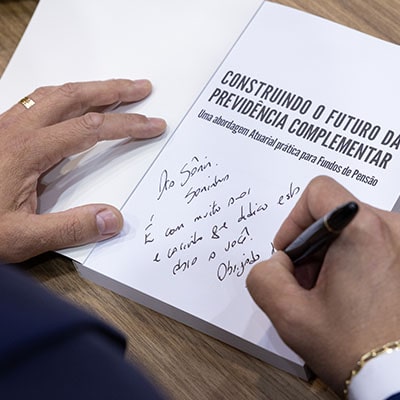 CONSTRUINDO O FUTURO DA
PREVIDÊNCIA COMPLEMENTAR
Uma abordagem Atuarial prática para Fundos de Pensão
Ao
É com muito
e carinho que dedico este
a você!
Obrigado